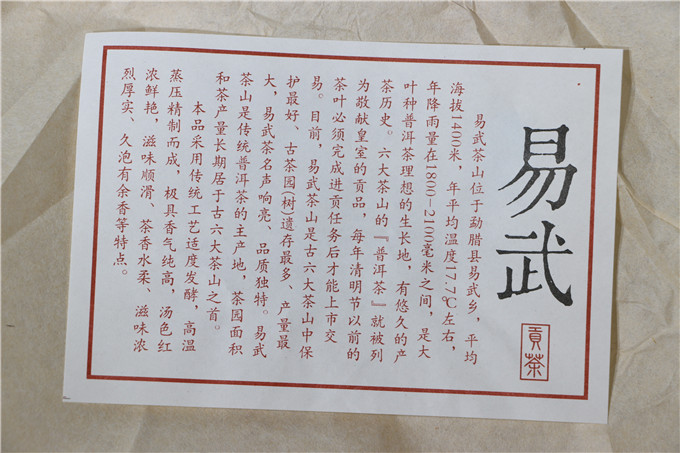 易武
貢茶
易武茶山位于勐腊县易武乡，平均
海拔1400米，年平均温度17.7℃左右，
年降雨量在1800-2100毫米之间，是大
叶种普洱茶理想的生长地，有悠久的产
茶历史。六大茶山的『普洱茶』就被列
为敬献皇室的贡品，每年清明节以前的
茶叶必须完成进贡任务后才能上市交
易。目前，易武茶山是古六大茶山中保
护最好、古茶园(树)遗存最多、产量最
大，易武茶名声响亮、品质独特。易武
茶山是传统普洱茶的主产地，茶园面积
和茶产量长期居于古六大茶山之首。
本品采用传统工艺适度发酵，高温
蒸压精制而成，极具香气纯高，汤色红
浓鲜艳，滋味顺滑、茶香水柔、滋味浓
烈厚实、久泡有余香等特点。